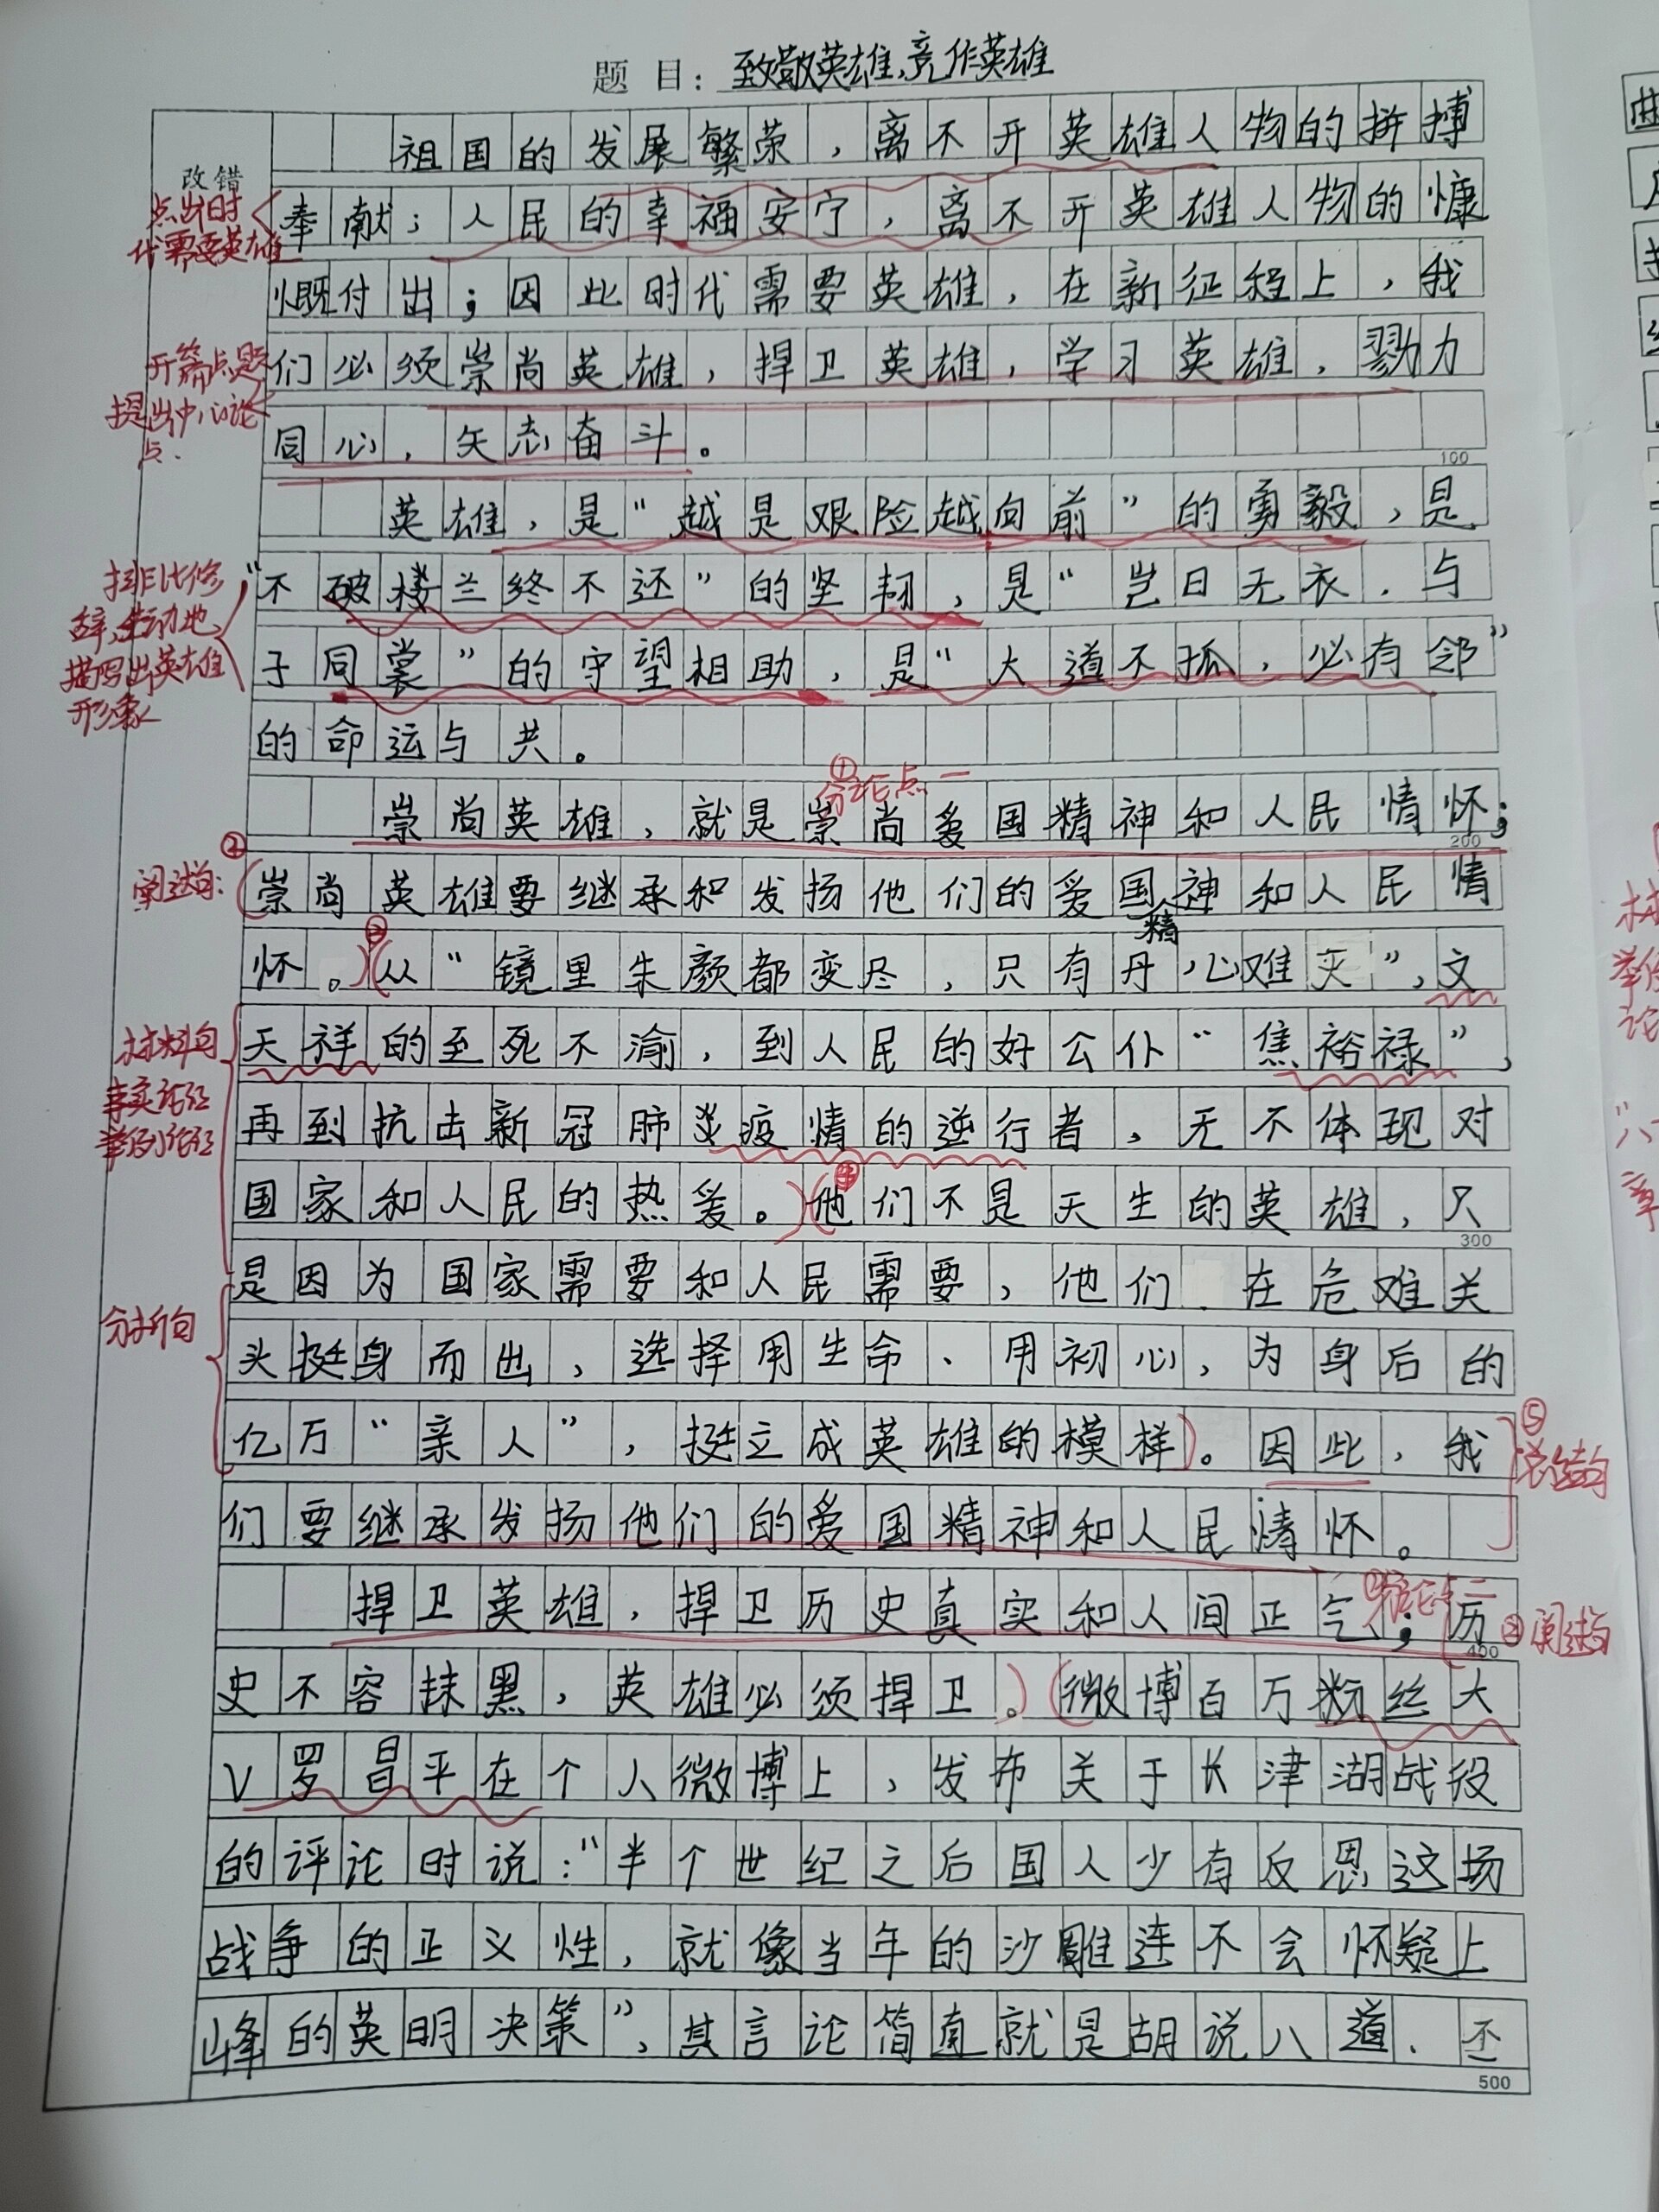 题 目：致敬英雄，竞作英雄
改错
祖国的发展繁荣，离不开英雄人物的拼搏
奉献；人民的幸福安宁，离不开英雄人物的慷
慨付出；因此时代需要英雄，在新征程上，我
们必须崇尚英雄，捍卫英雄，学习英雄，勠力
同心，矢志奋斗。
100
英雄，是“越是艰险越向前”的勇毅，是
“不破楼兰终不还”的坚韧，是“岂曰无衣．与
子同裳”的守望相助，是“大道不孤，必有邻”
的命运与共。
崇尚英雄，就是崇尚爱国精神和人民情怀；
200
崇尚英雄要继承和发扬他们的爱国精神和人民情
怀。从“镜里朱颜都变尽，只有丹心难灭”，文
天祥的至死不渝，到人民的好公仆“焦裕禄”，
再到抗击新冠肺炎疫情的逆行者，无不体现对
国家和人民的热爱。他们不是天生的英雄，只
300
是因为国家需要和人民需要，他们在危难关
头挺身而出，选择用生命、用初心，为身后的
亿万“亲人”，挺立成英雄的模样。因此，我
们要继承发扬他们的爱国精神和人民情怀。
捍卫英雄，捍卫历史真实和人间正气；历
400
史不容抹黑，英雄必须捍卫。微博百万粉丝大
V罗昌平在个人微博上，发布关于长津湖战役
的评论时说：“半个世纪之后国人少有反思这场
战争的正义性，就像当年的沙雕连不会怀疑上
峰的英明决策”，其言论简直就是胡说八道．丕
500
点出时
代需要英雄
开篇点题
提出中心论
点．
排比修
辞，生动地
描写出英雄
形象
①
分论点一
②
阐述句：
③
材料句
事实论证
举例论证
④
分析句
⑤
总结句
①分论点二
②阐述句